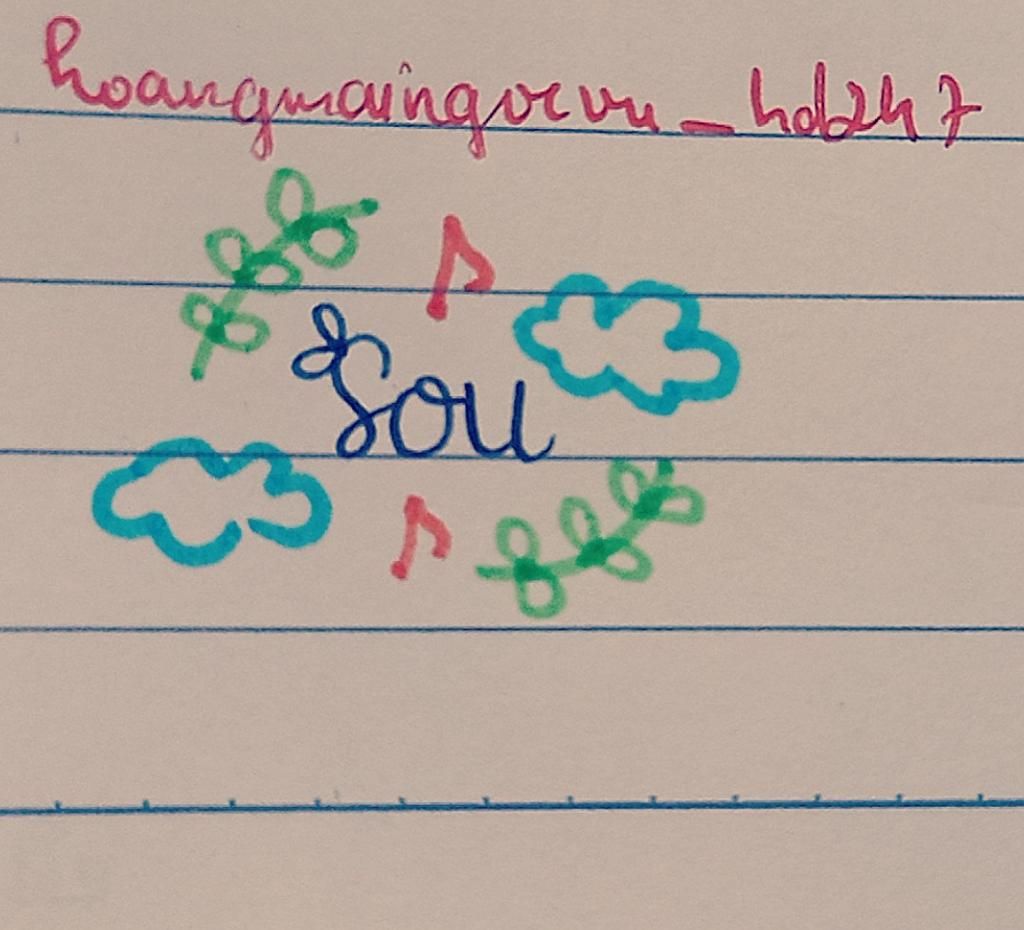 hoangmaingocvu_hdt2h7
Sou